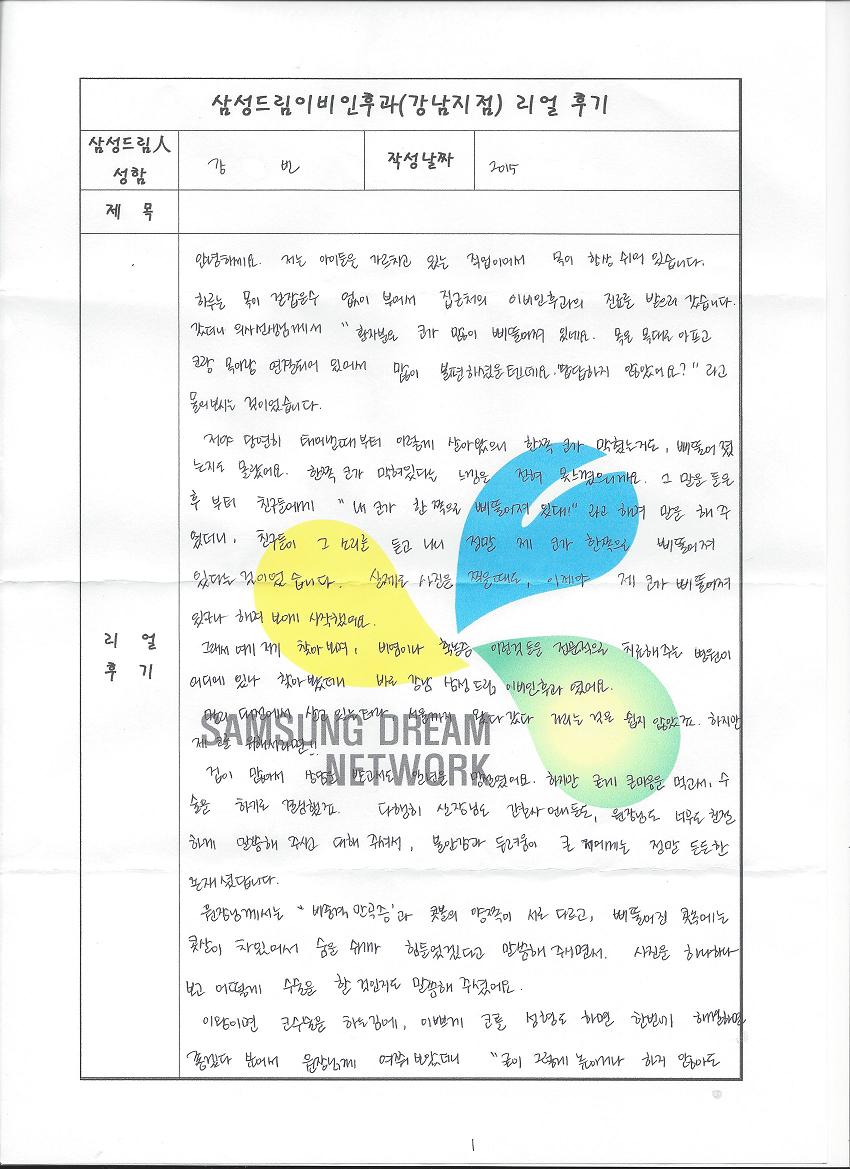 삼성드림이비인후과(강남지점) 리얼 후기
삼성드림人 성함
강 빈
작성날짜
2015
제 목
리 얼 후 기
안녕하세요. 저는 아이들을 가르치고 있는 직업이여서 목이 항상 쉬어 있습니다.
하루는 목이 걷잡을수 없이 부어서 집근처의 이비인후과의 진료를 받으러 갔습니다.
갔더니 의사선생님께서 " 환자분은 코가 많이 삐뚤어져 있네요. 목은 목대로 아프고
코랑 목이랑 연결되어 있어서 많이 불편하셨을텐데요. 답답하지 않았어요?" 라고
물어보시는 것이었습니다.
저야 당연히 태어날때부터 이렇게 살아왔으니 한쪽 코가 막혔는거도, 삐뚤어 졌
는지도 몰랐어요. 한쪽 코가 막혀있다는 느낌은 전혀 못느꼈으니까요. 그 말을 들은
후 부터 친구들에게 " 내 코가 한 쪽으로 삐뚤어져 있대!" 라고 하며 말을 해 주
었더니, 친구들이 그 소리를 듣고 나니 정말 제 코가 한쪽으로 삐뚤어져
있다는 것이었습니다. 실제로 사진을 찍을때도, 이제야 제 코가 삐뚤어져
있구나 하며 보이게 시작했어요.
그래서 여기 저기 찾아보며, 비염이나 축농증 이런것 들을 전문적으로 치료해주는 병원이
어디에 있나 찾아봤더니 바로 강남 삼성드림 이비인후과 였어요.
대전에서 살고 있는터라 서울까지 왔다갔다 거리는 것은 쉽지 않았죠. 하지만
제 코를 위해서라면!!
SAMSUNG DREAM
NETWORK
겁이 많아서 상담을 받고서도 망설였어요. 하지만 굳게 큰마음을 먹고서, 수
술을 하기로 결정했죠. 다행히 실장님도 간호사 언니들도, 원장님도 너무도 친절
하게 말씀해 주시고 대해 주셔서, 불안감과 두려움이 큰 저에게는 정말 든든한
존재 셨답니다.
원장님께서는 " 비중격 만곡증'과 콧볼의 양쪽이 서로 다르고, 삐뚤어진 콧속에는
콧살이 차있어서 숨을 쉬기가 힘들었겠다고 말씀해 주시면서. 사진을 하나하나
보고 어떻게 수술을 할 것인지도 말씀해 주셨어요.
이왕이면 코수술을 하는김에, 이쁘게 코를 성형도 하면 한번에 해결하면
좋겠다 싶어서 원장님께 여쭤 보았더니 "굳이 그렇게 높이거나 하지 않아도
1